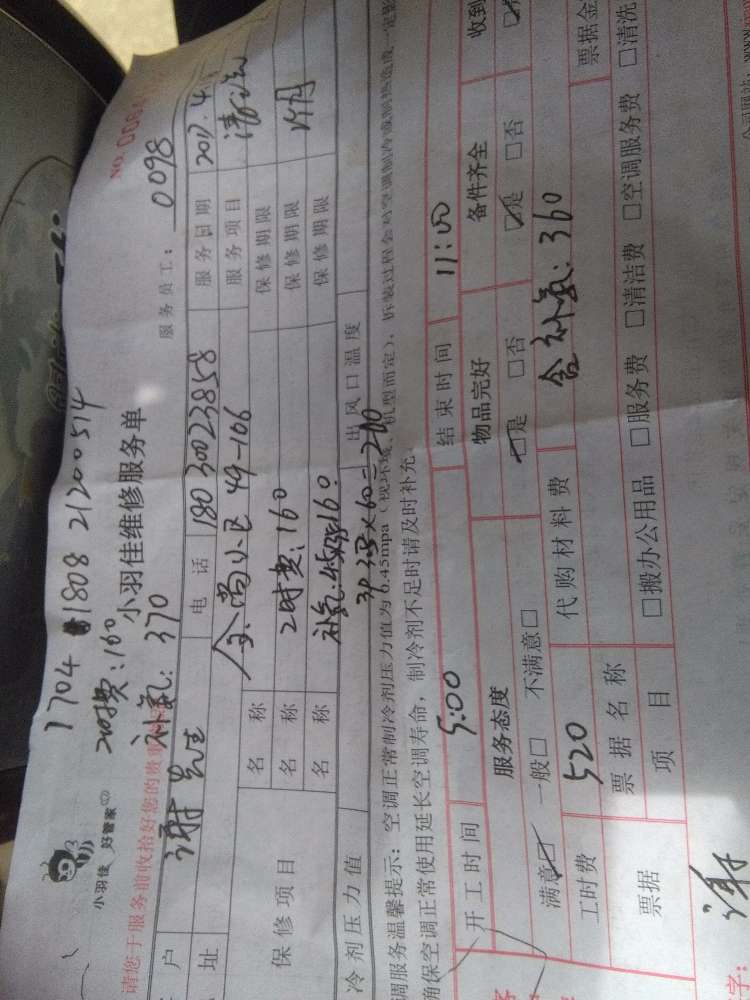 1704 1808 21200514
2小时费:160
补氟:370
NO.
小羽佳 好管家
小羽佳维修服务单
服务员工: 0098
请您于服务前收拾好您的贵
户 谢先生 电 话 18030023858 服务日期 2017.4.
址 金尚小区 49-106 服务项目 清洗
保修项目
名 称 保修期限
名 称 2时费:160 保修期限
名 称 保修期限 1个月
冷剂压力值 出风口温度
调服务温馨提示:空调正常制冷剂压力值为0.45mpa(视环境、机型而定),拆装过程会对空调制冷或制热造成一定影
确保空调正常使用延长空调寿命,制冷剂不足时请及时补充
开工时间 5:00 结束时间 11:00
服务态度 物品完好 备件齐全 收到
满意☑ 一般□ 不满意□ ☑是 □否 ☑是 □否
工时费 520 代购材料费 含补氟:360
票据 票据名称 票据金
项 目 □搬办公用品 □服务费 □清洁费 □空调服务费 □清洗
字: 谢